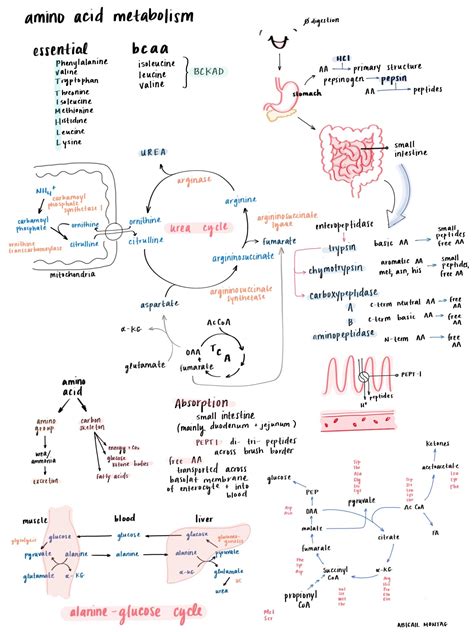 amino acid metabolism
essential
Phenylalanine
Valine
Tryptophan
Threonine
Isoleucine
Methionine
Histidine
Leucine
Lysine
bcaa
isoleucine
leucine
valine
BCKAD
Ø digestion
stomach
HCl
AA → primary structure
pepsinogen → pepsin
AA → peptides
small
intestine
enteropeptidase
trypsin
basic AA → small
peptides
free AA
chymotrypsin
aromatic AA → small
met, asn, his
peptides
free AA
carboxypeptidase
A
c-term neutral AA → free
AA
B
c-term basic AA → free
AA
aminopeptidase
N-term AA → free
AA
PEPT-1
peptides
H+
UREA
arginase
arginine
argininosuccinate
lyase
fumarate
argininosuccinate
argininosuccinate
synthetase
urea cycle
ornithine
citrulline
aspartate
α-KG
glutamate
NH4+
carbamoyl
phosphate
synthetase I
carbamoyl
phosphate
ornithine
citrulline
ornithine
transcarbamoylase
mitochondria
AcCoA
OAA
fumarate
TCA
amino
acid
amino
group
carbon
skeleton
urea/
ammonia
excretion
energy + CO2
glucose
ketone bodies
fatty acids
Absorption
small intestine
(mainly duodenum + jejunum)
PEPT1 di- tri- peptides
across brush border
free AA
transported across
basolat membrane
of enterocyte + into
blood
muscle
blood
liver
glycolysis
glucose
glucose
glucose
pyruvate
alanine
alanine
alanine
pyruvate
glutamate
α-KG
α-KG
glutamate
urea
alanine - glucose cycle
Ketones
acetoacetate
glucose
PEP
pyruvate
OAA
Ac CoA
malate
citrate
FA
fumarate
Succinyl
CoA
α-KG
propionyl
CoA
ABIGAIL MONTAG